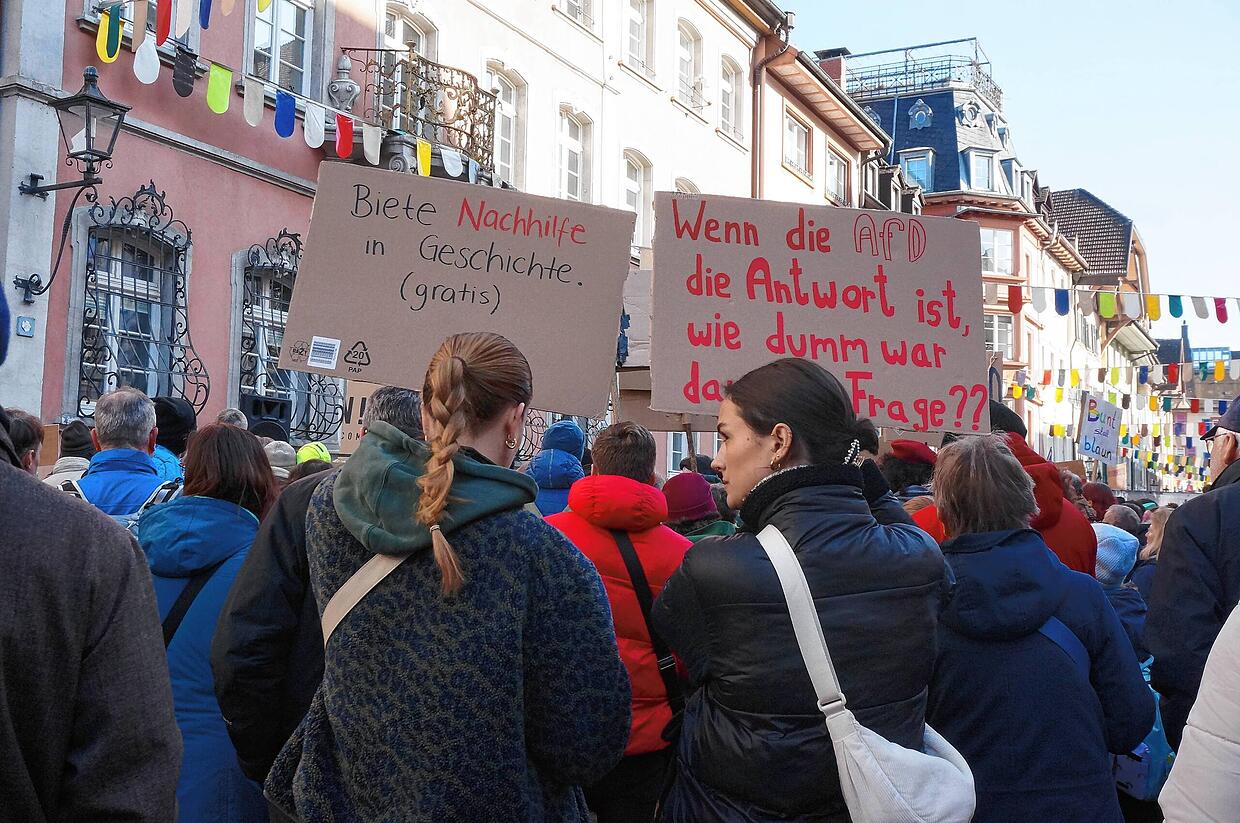 Biete Nachhilfe
in Geschichte.
(gratis)
20
PAP
Wenn die AfD
die Antwort ist,
wie dumm war
Frage??
Bunt
statt
blaun